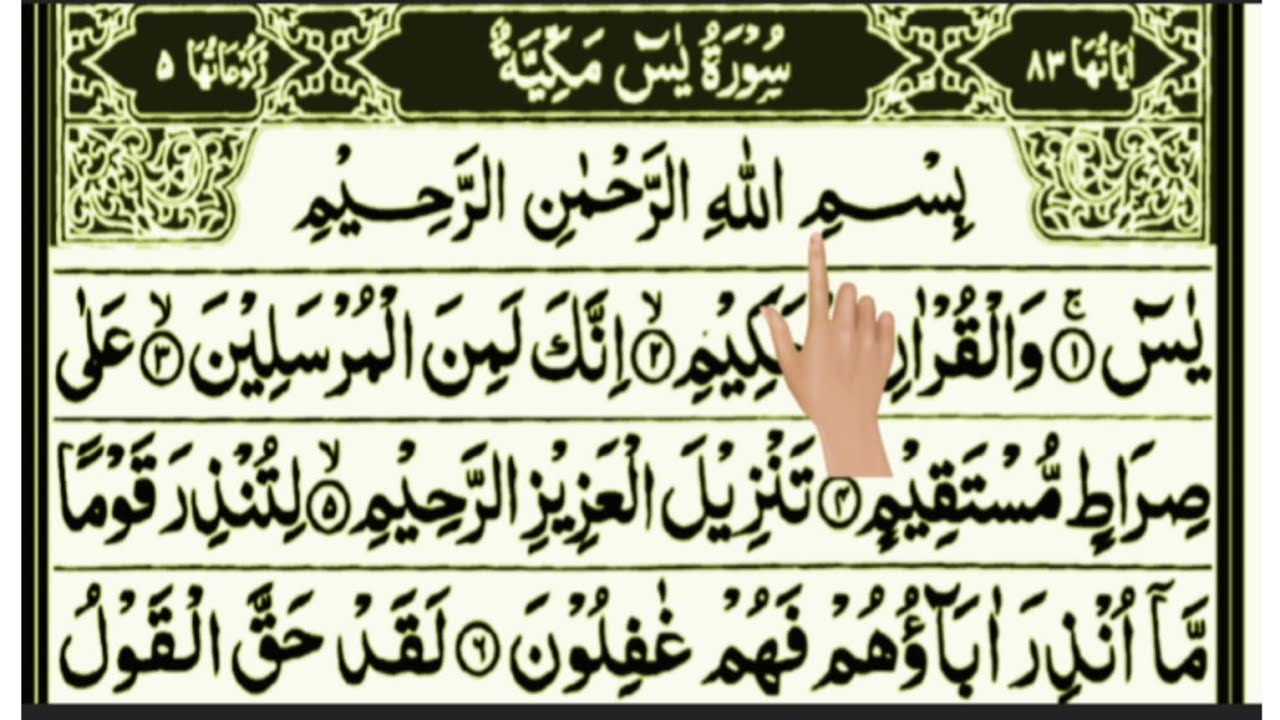 اٰیَاتُهَا ٨٣ سُوْرَةُ یٰسٓ مَكِّیَّةٌ رُكُوْعَاتُهَا ۵
بِسْمِ اللّٰهِ الرَّحْمٰنِ الرَّحِیْمِ
یٰسٓ ۚ﴿۱﴾ وَالْقُرْاٰنِ الْحَكِیْمِ ۙ﴿۲﴾ اِنَّكَ لَمِنَ الْمُرْسَلِیْنَ ۙ﴿۳﴾ عَلٰی
صِرَاطٍ مُّسْتَقِیْمٍ ﴿۴﴾ تَنْزِیْلَ الْعَزِیْزِ الرَّحِیْمِ ۙ﴿۵﴾ لِتُنْذِرَ قَوْمًا
مَّاۤ اُنْذِرَ اٰبَآؤُهُمْ فَهُمْ غٰفِلُوْنَ ﴿۶﴾ لَقَدْ حَقَّ الْقَوْلُ